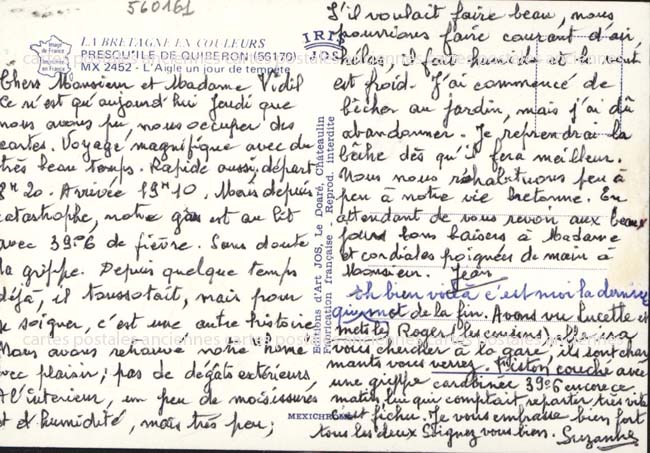 560161
LA BRETAGNE EN COULEURS
PRESQU'ILE DE QUIBERON (56170)
MX 2452 - L'Aigle un jour de tempête
Image de France
Imprimée en France
IRIS
JOS
Chers Monsieur et Madame Vidil
Ce n'est qu'aujourd'hui jeudi que
nous avons pu, nous occuper des
cartes. Voyage magnifique avec du
très beau temps. Rapide aussi, départ
8H20. Arrivée 19H10. Mais depuis
catastrophe, notre gas est au lit
avec 39°6 de fièvre. Sans doute
la grippe. Depuis quelque temps
déjà, il toussotait, mais pour
se soigner, c'est une autre histoire
Nous avons retrouvé notre home
avec plaisir; pas de dégâts extérieurs,
A l'intérieur, un peu de moisissures
et d'humidité, mais très peu;
Editions d'Art JOS, Le Doaré, Châteaulin
Fabrication française - Reprod. interdite
MEXICHROME
S'il voulait faire beau, nous
pourrions faire courant d'air,
hélas, il fait humide et le vent
est froid. J'ai commencé de
bêcher au jardin, mais j'ai dû
abandonner. Je reprendrai la
bêche dès qu'il fera meilleur.
Nous nous réhabituons peu à
peu à notre vie bretonne. En
attendant de vous revoir aux beaux
jours bons baisers à Madame
et cordiales poignées de main à
Monsieur. Jean
Eh bien voilà c'est moi la dernière
qui mot de la fin. Avons vu Lucette et
Roger (les cousins), elle ira
vous chercher à la gare, ils sont char
mants vous verrez. Fiston couché avec
une grippe carabinée 39°6 encore ce
matin, lui qui comptait repartir très vite
c'est fichu. Je vous embrasse bien fort
tous les deux Soignez vous bien. Suzanne
cartes postales anciennes cartes postales anciennes